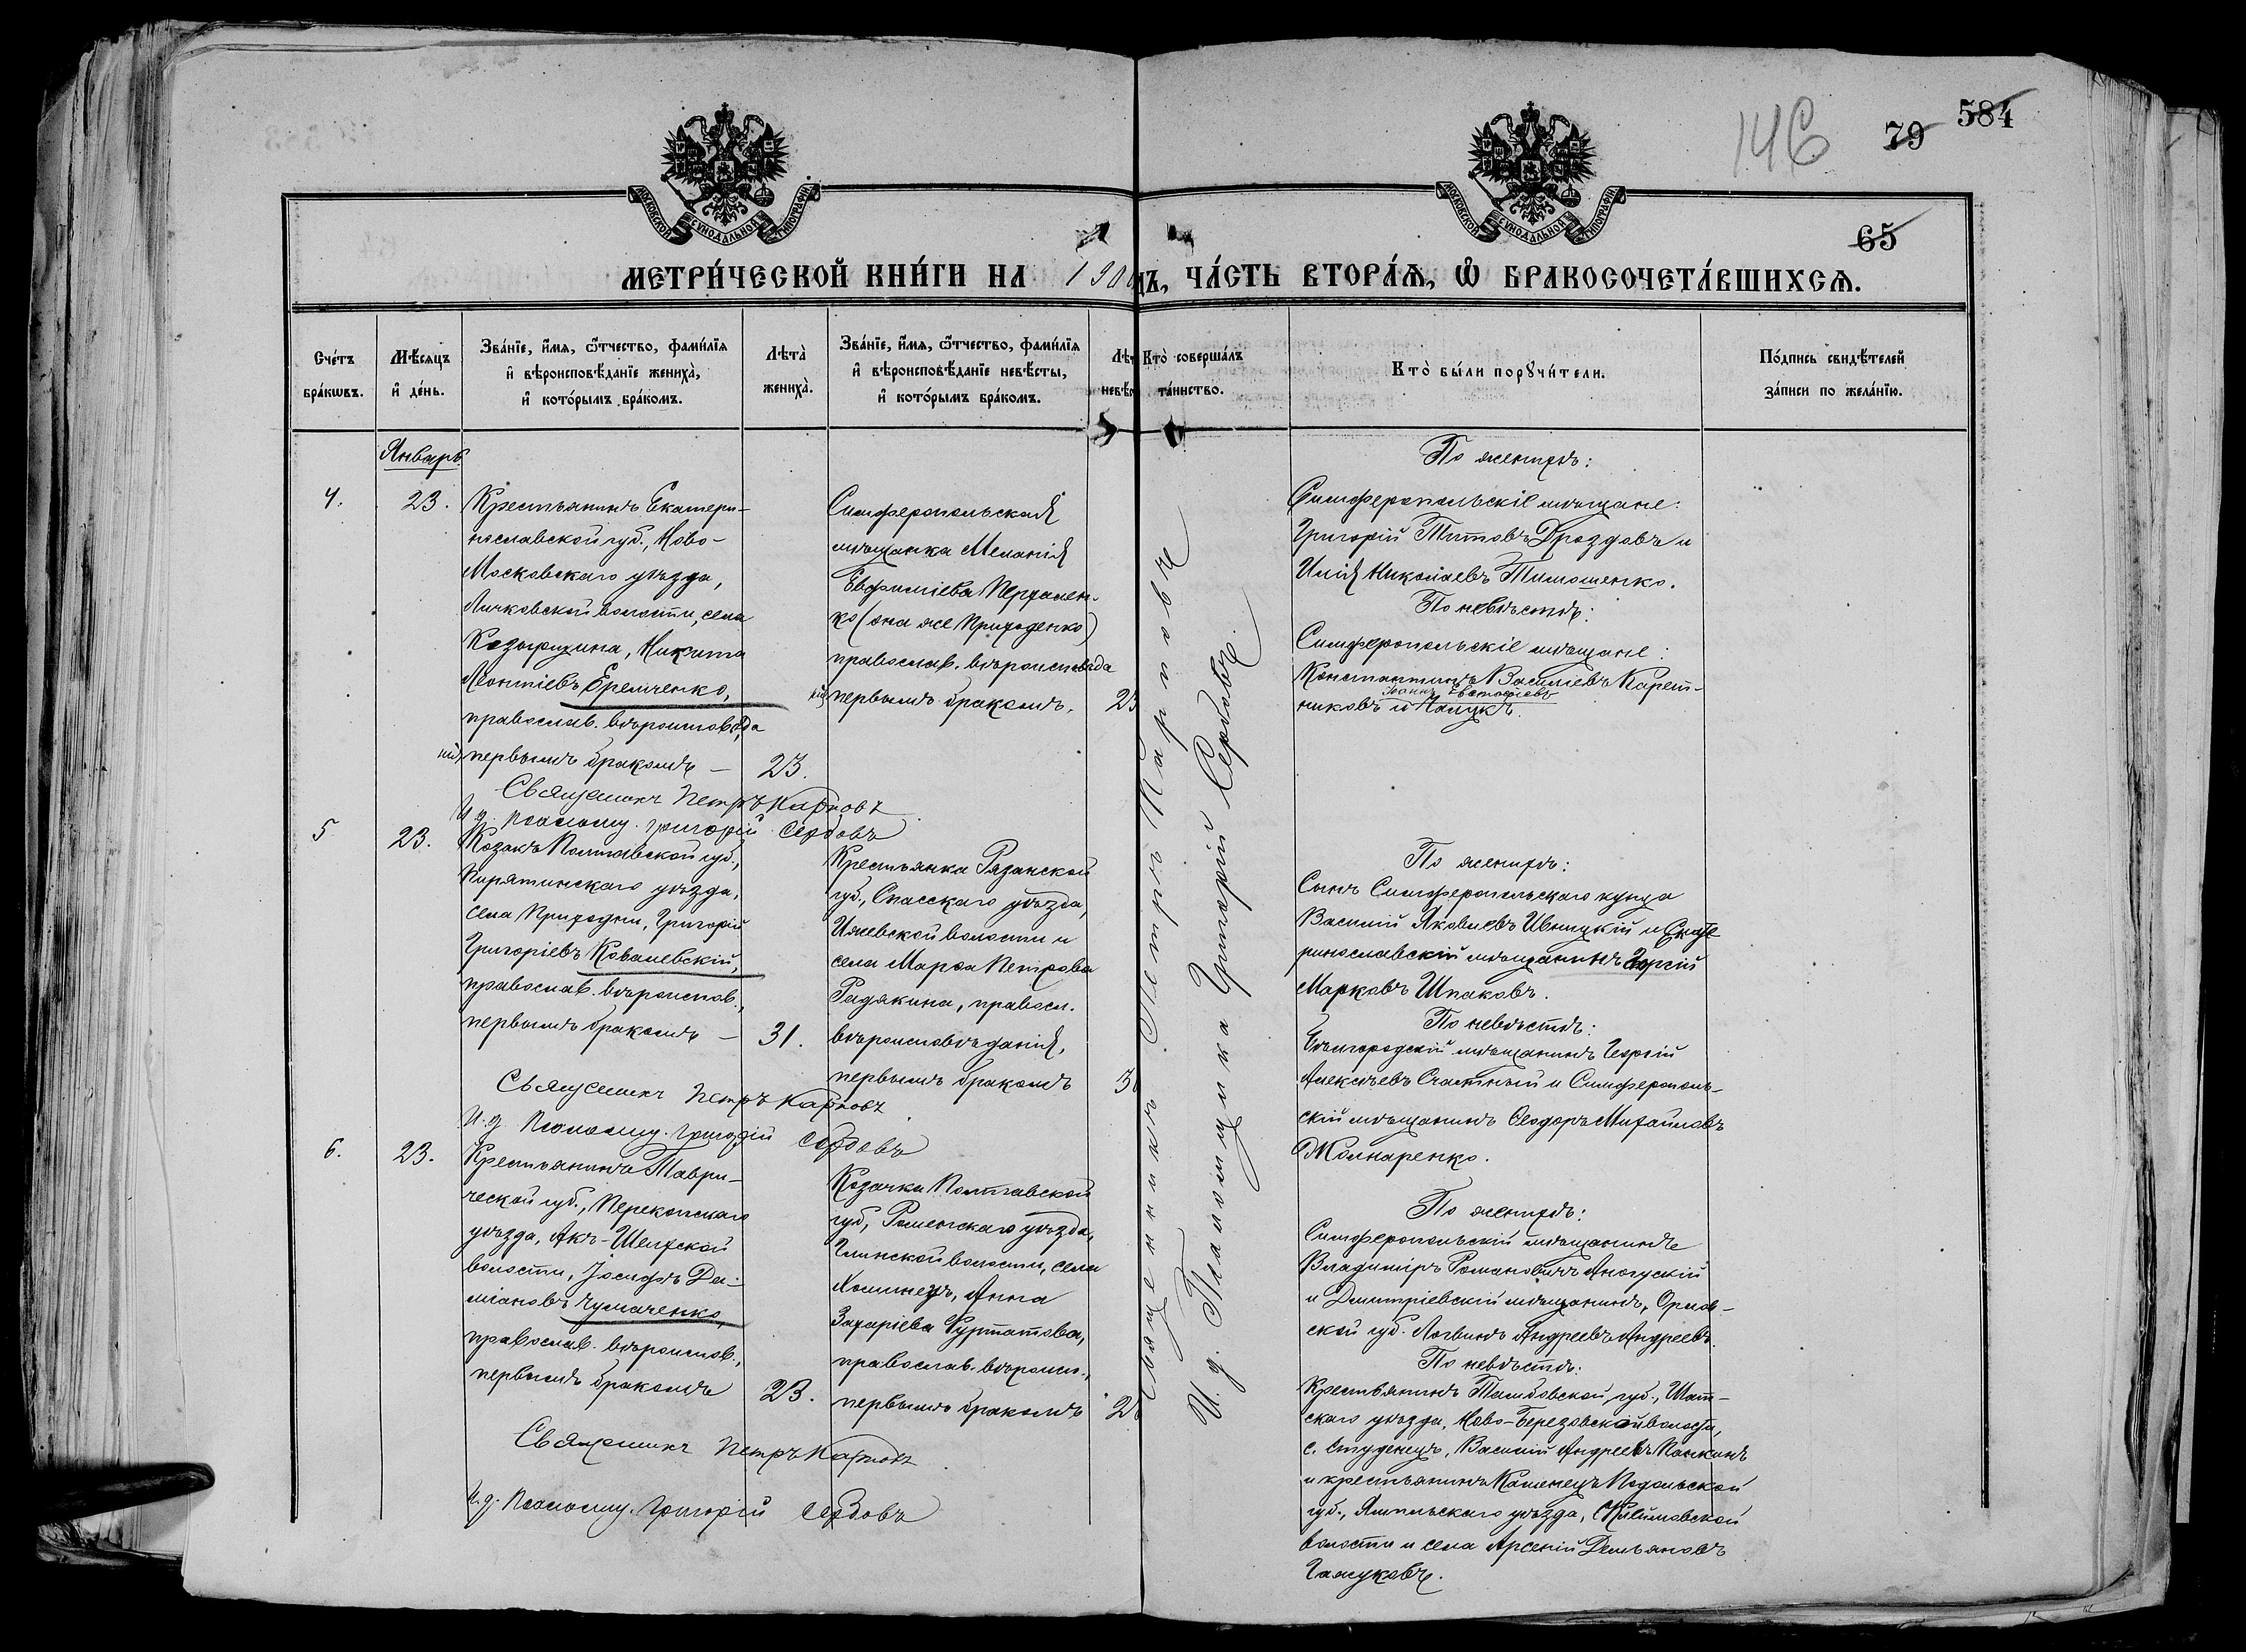 146
79
584
65
МОСКОВСКОЙ СѴНОДАЛЬНОЙ ТИПОГРАФІИ
МОСКОВСКОЙ СѴНОДАЛЬНОЙ ТИПОГРАФІИ
МЕТРИ́ЧЕСКОЙ КНИ́ГИ НА 190 ДЪ, ЧА́СТЬ ВТОРА́Ѧ, Ѽ БРАКОСОЧЕТА́ВШИХСѦ.
Сче́тъ
бра́кѡвъ.
Мѣ́сяцъ
и҆ де́нь.
Зва́нїе, и҆́мя, ѻ҆́тчество, фами́лїя
и҆ вѣроисповѣ́данїе жениха̀,
и҆ кото́рымъ бра́комъ.
Лѣта̀
жениха̀.
Зва́нїе, и҆́мя, ѻ҆́тчество, фами́лїя
и҆ вѣроисповѣ́данїе невѣ́сты,
и҆ кото́рымъ бра́комъ.
Лѣт
невѣс
Кто̀ соверша́лъ
та́инство.
Кто̀ бы́ли порꙋчи́тели.
По́дпись свидѣ́телей
за́писи по жела́нїю.
Январь.
4.
23.
Крестьянинъ Екатери-
нославской губ., Ново-
Московскаго уѣзда,
Личковской волости, села
Козырщина, Никита
Леонтіевъ Еремченко,
православ. вѣроисповѣда
нія первымъ бракомъ —
23.
Симферопольская
мѣщанка Меланія
Евфиміева
ко (она же Приходенко)
православ. вѣроисповѣда
нія первымъ бракомъ.
2
По женихѣ:
Симферопольскіе мѣщане:
Григорій Титовъ Дроздовъ и
Илія Николаевъ Тимошенко.
По невѣстѣ:
Симферопольскіе мѣщане:
Константинъ Васильевъ Карет-
Іоаннъ Евстафіевъ
никовъ и
Священникъ Петръ Карповъ
И. д. Псаломщ. Григорій Сербовъ
5
23.
Козакъ Полтавской губ.,
Пирятинскаго уѣзда,
села Приходки, Григорій
Григоріевъ Ковалевскій,
православ. вѣроиспов.,
первымъ бракомъ —
31.
Крестьянка Рязанской
губ., Спасскаго уѣзда,
Ижевской волости и
села Марѳа Петрова
Радякина, правосл.
вѣроисповѣданія,
первымъ бракомъ
3
По женихѣ:
Сынъ Симферопольскаго купца
Василій Яковлевъ Ивницкій и Екате
ринославскій мѣщанинъ Георгій
Марковъ Шпаковъ.
По невѣстѣ:
Бѣлгородскій мѣщанинъ Георгій
Алексѣевъ Счастный и Симферополь-
скій мѣщанинъ Ѳеодоръ Михайловъ
Жолнаренко.
Священникъ Петръ Карповъ
И. д. Псаломщ. Григорій Сербовъ
6.
23.
Крестьянинъ Таври-
ческой губ., Перекопскаго
уѣзда, Акъ-Шеихской
волости, Іосифъ Да-
міановъ Чумаченко,
православ. вѣроиспов.,
первымъ бракомъ
23.
Козачка Полтавской
губ., Роменскаго уѣзда,
Глинской волости, села
Хоминецъ, Анна
Захаріева Фуртатова,
православ. вѣроисп.,
первымъ бракомъ
2
По женихѣ:
Симферопольскій мѣщанинъ
Владиміръ Романовичъ
и Дмитріевскій мѣщанинъ, Орлов-
ской губ. Логвинъ Андреевъ Андреевъ.
По невѣстѣ:
Крестьянинъ Тамбовской губ., Шат-
скаго уѣзда, Ново-Березовской волости,
с. Студенецъ, Василій Андреевъ Панкинъ
и крестьянинъ Каменецъ Подольской
губ., Ямпольскаго уѣзда,
волости и села Арсеній Демьяновъ
Гамуковъ.
Священникъ Петръ Карповъ
И. д. Псаломщ. Григорій Сербовъ
Священникъ Петръ Карповъ
И. д. Псаломщика Григорій Сербовъ.